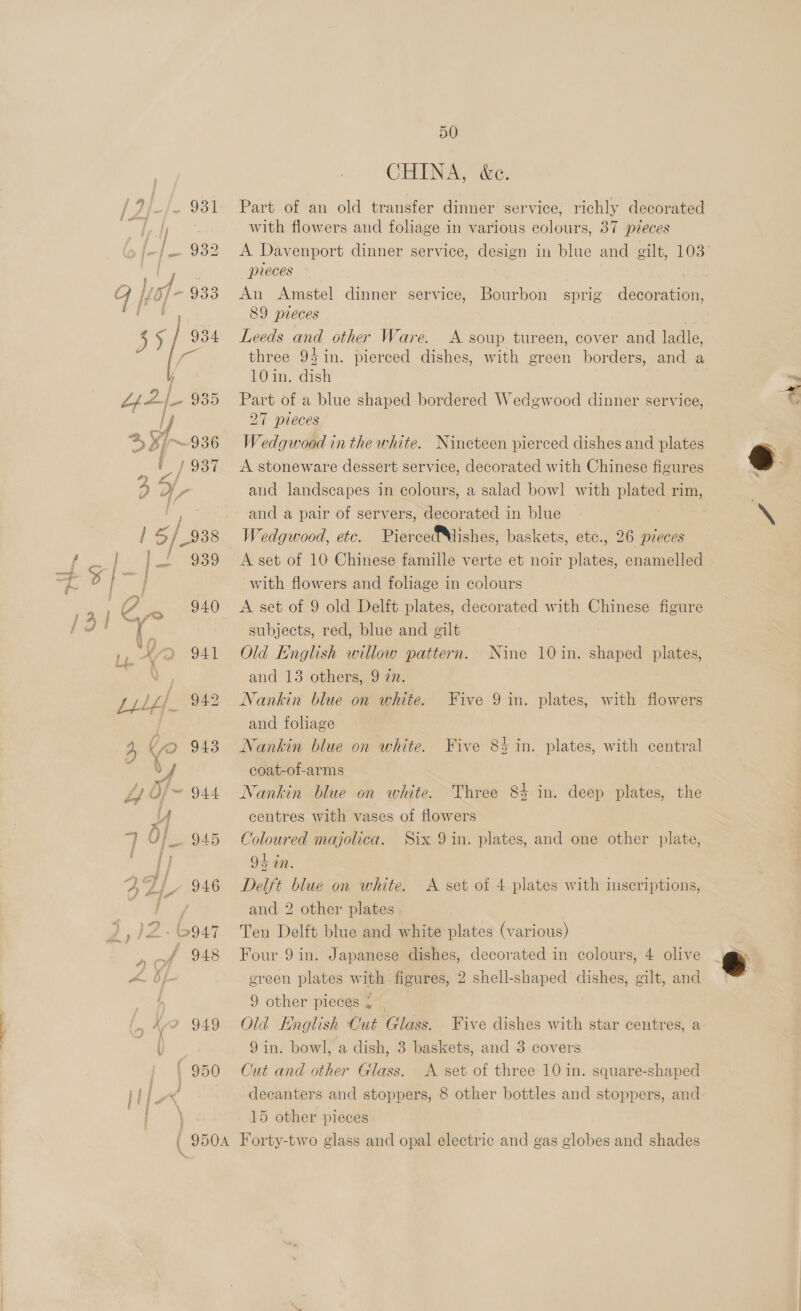 50
CHINA, &c.
931 Part of an old transfer dinner service, richly decorated
with flowers and foliage in various colours, 37 pieces
932 A Davenport dinner service, design in blue and gilt, 103
pieces
933 An Amstel dinner service, Bourbon sprig decoration,
89 pieces
934 Leeds and other Ware. A soup tureen, cover and ladle,
three 9½ in. pierced dishes, with green borders, and a
10 in. dish
935 Part of a blue shaped bordered Wedgwood dinner service,
27 pieces
936 Wedgwood in the white. Nineteen pierced dishes and plates
937 A stoneware dessert service, decorated with Chinese figures
and landscapes in colours, a salad bowl with plated rim,
and a pair of servers, decorated in blue
938 Wedgwood, etc. Pierced dishes, baskets, etc., 26 pieces
939 A set of 10 Chinese famille verte et noir plates, enamelled
with flowers and foliage in colours
940 A set of 9 old Delft plates, decorated with Chinese figure
subjects, red, blue and gilt
941 Old English willow pattern. Nine 10 in. shaped plates,
and 13 others, 9 in.
942 Nankin blue on white. Five 9 in. plates, with flowers
and foliage
943 Nankin blue on white. Five 8½ in. plates, with central
coat-of-arms
944 Nankin blue on white. Three 8½ in. deep plates, the
centres with vases of flowers
945 Coloured majolica. Six 9 in. plates, and one other plate,
9½ in.
946 Delft blue on white. A set of 4 plates with inscriptions,
and 2 other plates
947 Ten Delft blue and white plates (various)
948 Four 9 in. Japanese dishes, decorated in colours, 4 olive
green plates with figures, 2 shell-shaped dishes, gilt, and
9 other pieces
949 Old English Cut Glass. Five dishes with star centres, a
9 in. bowl, a dish, 3 baskets, and 3 covers
950 Cut and other Glass. A set of three 10 in. square-shaped
decanters and stoppers, 8 other bottles and stoppers, and
15 other pieces
950A Forty-two glass and opal electric and gas globes and shades